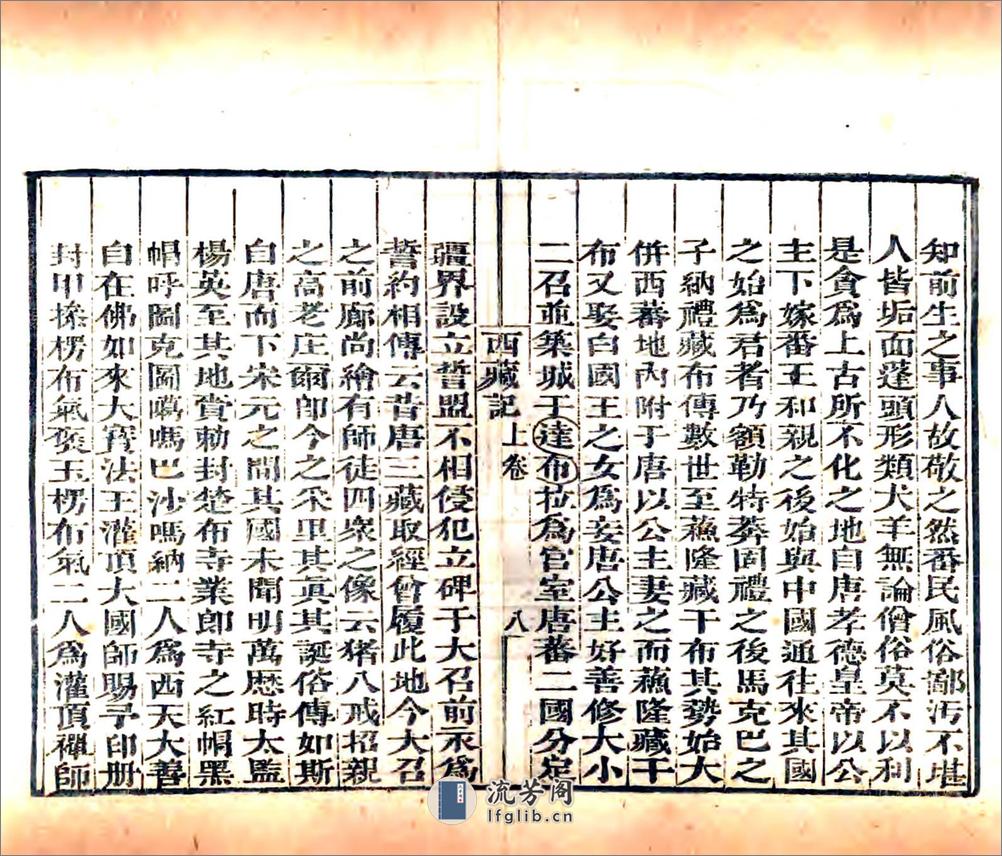 知前生之事人故敬之然番民風俗鄙汚不堪
人皆垢面蓬頭形類犬羊無論僧俗莫不以利
是貪爲上古所不化之地自唐孝德皇帝以公
主下嫁番王和親之後始與中國通往來其國
之始爲君者乃額勒特莽固禮之後馬克巴之
子納禮藏布傳數世至蘓隆藏干布其勢始大
併西番地內附于唐以公主妻之而蘓隆藏干
布又娶白國王之女爲妾唐公主好善修大小
二召並築城于達布拉爲官室唐蕃二國分定
西藏記 上卷 八
疆界設立誓盟不相侵犯立碑于大召前永爲
誓約相傳云昔唐三藏取經曾履此地今大召
之前廊尚繪有師徒四衆之像云猪八戒招親
之高老庄爾郎今之采里其眞其誕俗傳如斯
自唐而下宋元之間其國未聞明萬歴時太監
楊英至其地賞勅封楚布寺業郎寺之紅帽黑
帽呼圖克圖噶嗎巴沙嗎納二人爲西天大善
自在佛如來大寶法王灌頂大國師賜予印册
封甲操楞布氣褒玉楞布氣二人爲灌頂禪師
流芳阁
lfglib.cn